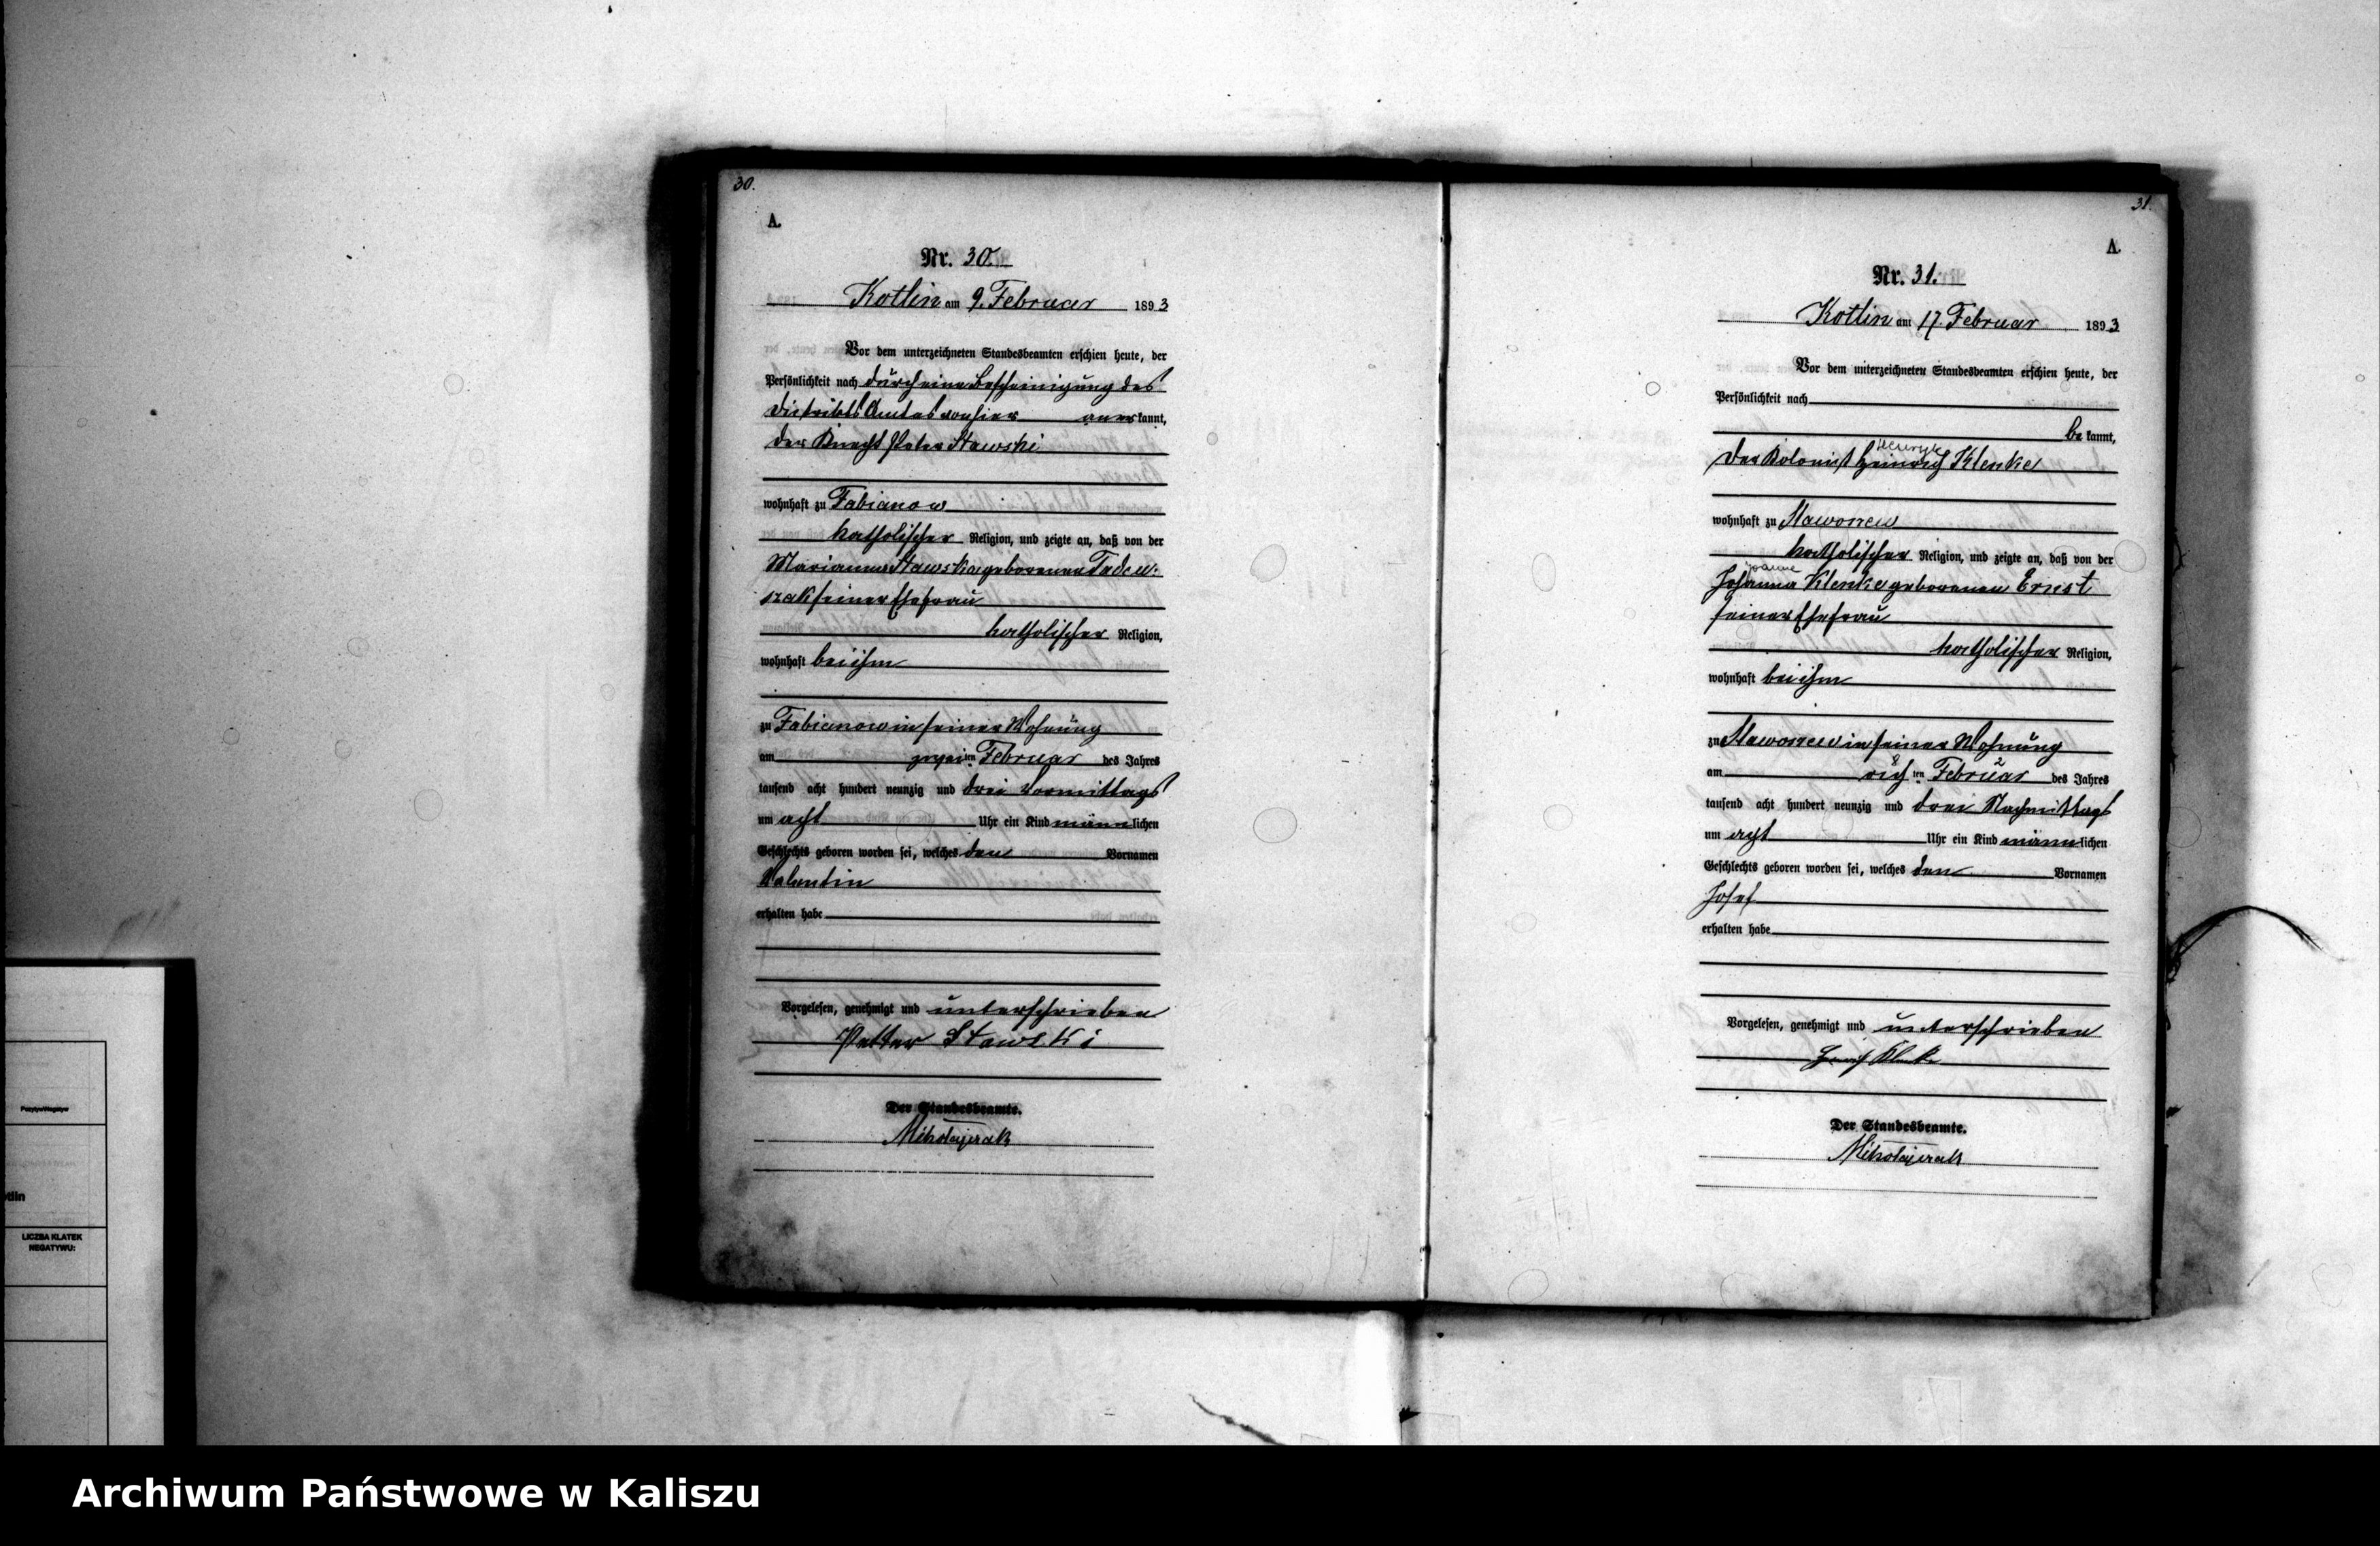 30.
A.
Nr. 30.
Kotlin am 9. Februar 1893
Vor dem unterzeichneten Standesbeamten erschien heute, der
Persönlichkeit nach durch eine Bescheinigung des
Distrikts Amtes von hier anerkannt,
der Knecht Peter Stawski
wohnhaft zu Fabianow
katholischer Religion, und zeigte an, daß von der
Marianna Stawska geborenen Tadeu-
szak seiner Ehefrau
katholischer Religion,
wohnhaft bei ihm
zu Fabianow in seiner Wohnung
am zweiten Februar des Jahres
tausend acht hundert neunzig und drei Vormittags
um acht Uhr ein Kind männlichen
Geschlechts geboren worden sei, welches den Vornamen
Valentin
erhalten habe
Vorgelesen, genehmigt und unterschrieben
Petter Stawski
Der Standesbeamte.
Mikolajczak
31.
A.
Nr. 31.
Kotlin am 17. Februar 1893
Vor dem unterzeichneten Standesbeamten erschien heute, der
Persönlichkeit nach
bekannt,
Henryk
der Kolonist Heinrich Klenke
wohnhaft zu
katholischer Religion, und zeigte an, daß von der
Joanne
Johanna Klenke geborenen Ernst
seiner Ehefrau
katholischer Religion,
wohnhaft bei ihm
zu in seiner Wohnung
8
am ten Februar des Jahres
tausend acht hundert neunzig und drei Nachmittags
um acht Uhr ein Kind männlichen
Geschlechts geboren worden sei, welches den Vornamen
Josef
erhalten habe
Vorgelesen, genehmigt und unterschrieben
Heinrich Klenke
Der Standesbeamte.
Mikolajczak
Pozytyw/Negatyw
tlin
LICZBA KLATEK
NEGATYWU:
Archiwum Państwowe w Kaliszu